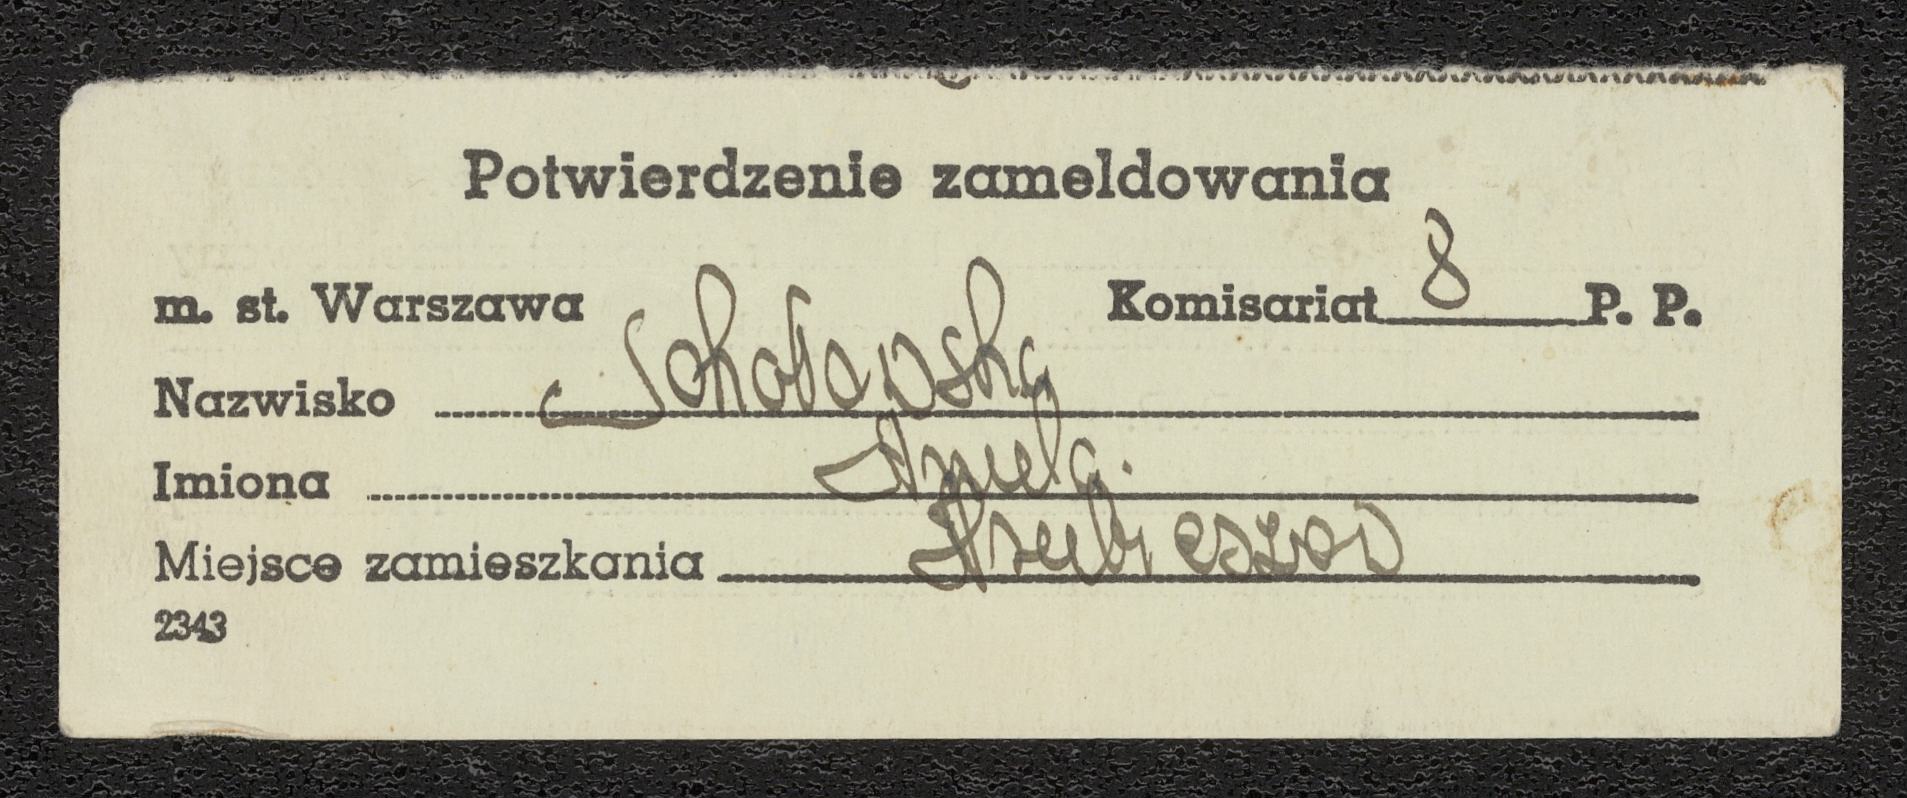 Potwierdzenie zameldowania
m. st. Warszawa Komisariat 8 P. P.
Nazwisko Sokołowska
Imiona Aniela
Miejsce zamieszkania Hrubieszów
2343